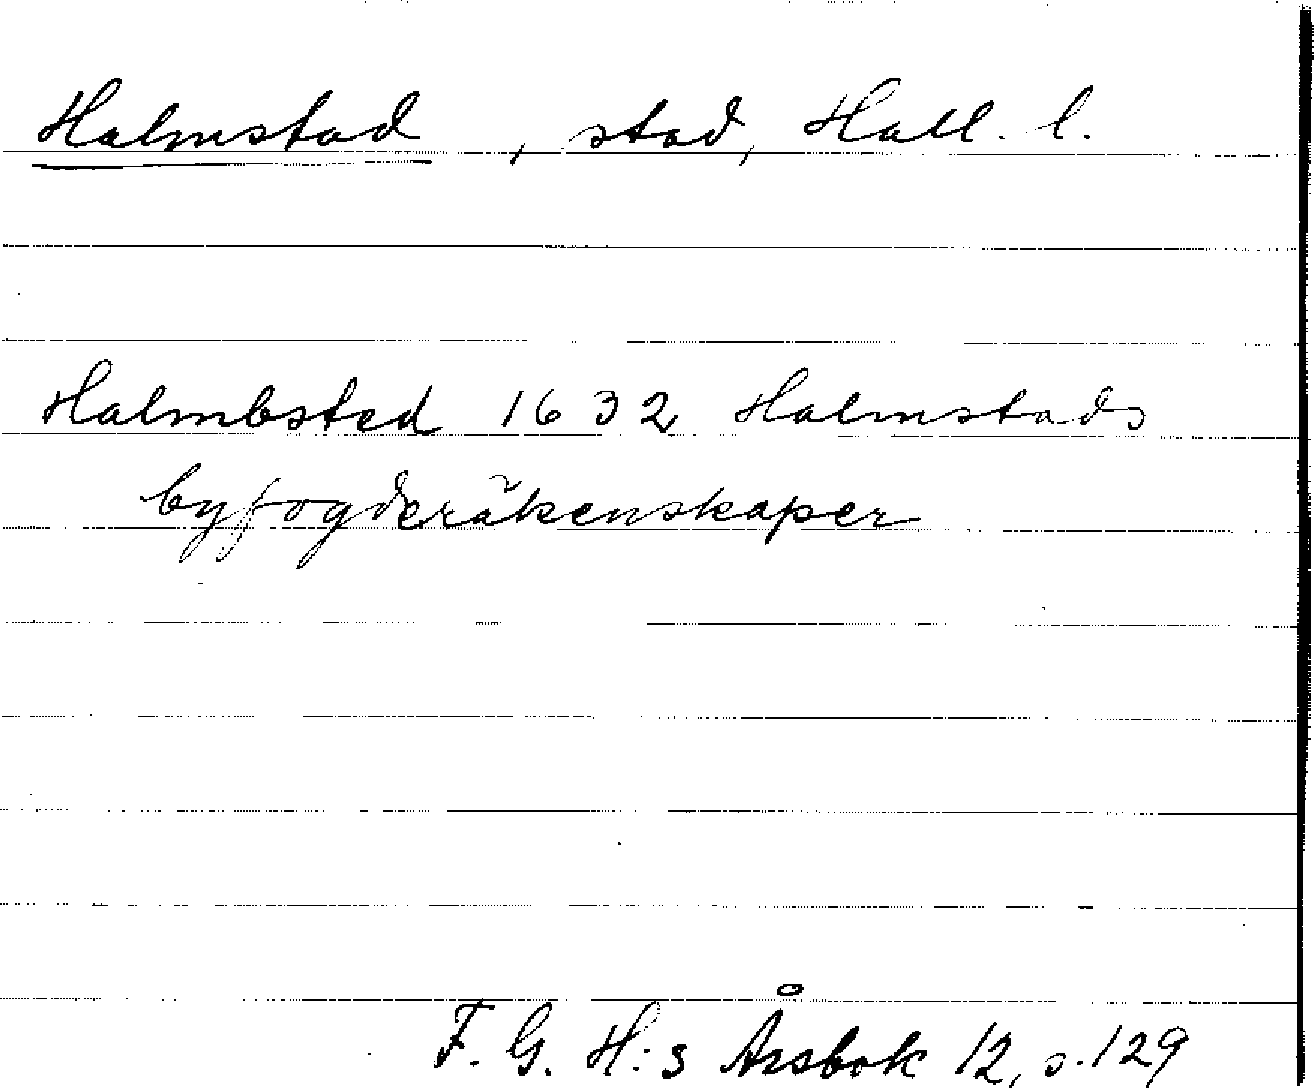 Halmstad, stad, Hall. l.
Halmbsted 1632 Halmstads
byfogderäkenskaper
F. G. H:s Årsbok 12, s. 129